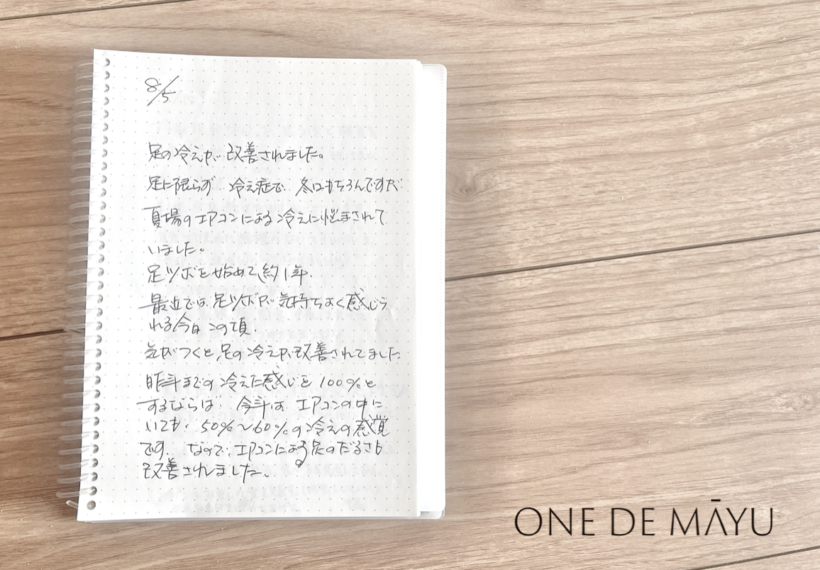 8/5
足の冷えが改善されました。
足に限らず 冷え症で 冬はもちろんですが
夏場のエアコンによる冷えに悩まされて
いました。
足ツボを始めて約1年.
最近では、足ツボが気持ちよく感じら
れる今日この頃.
気がつくと足の冷えが改善されてました
昨年までの冷えた感じを100%と
するならば 今年は エアコンの中に
いても、50%〜60%の冷えの感覚
です. なので、エアコンによる足のだるさも
改善されました。
ONE DE MĀYU